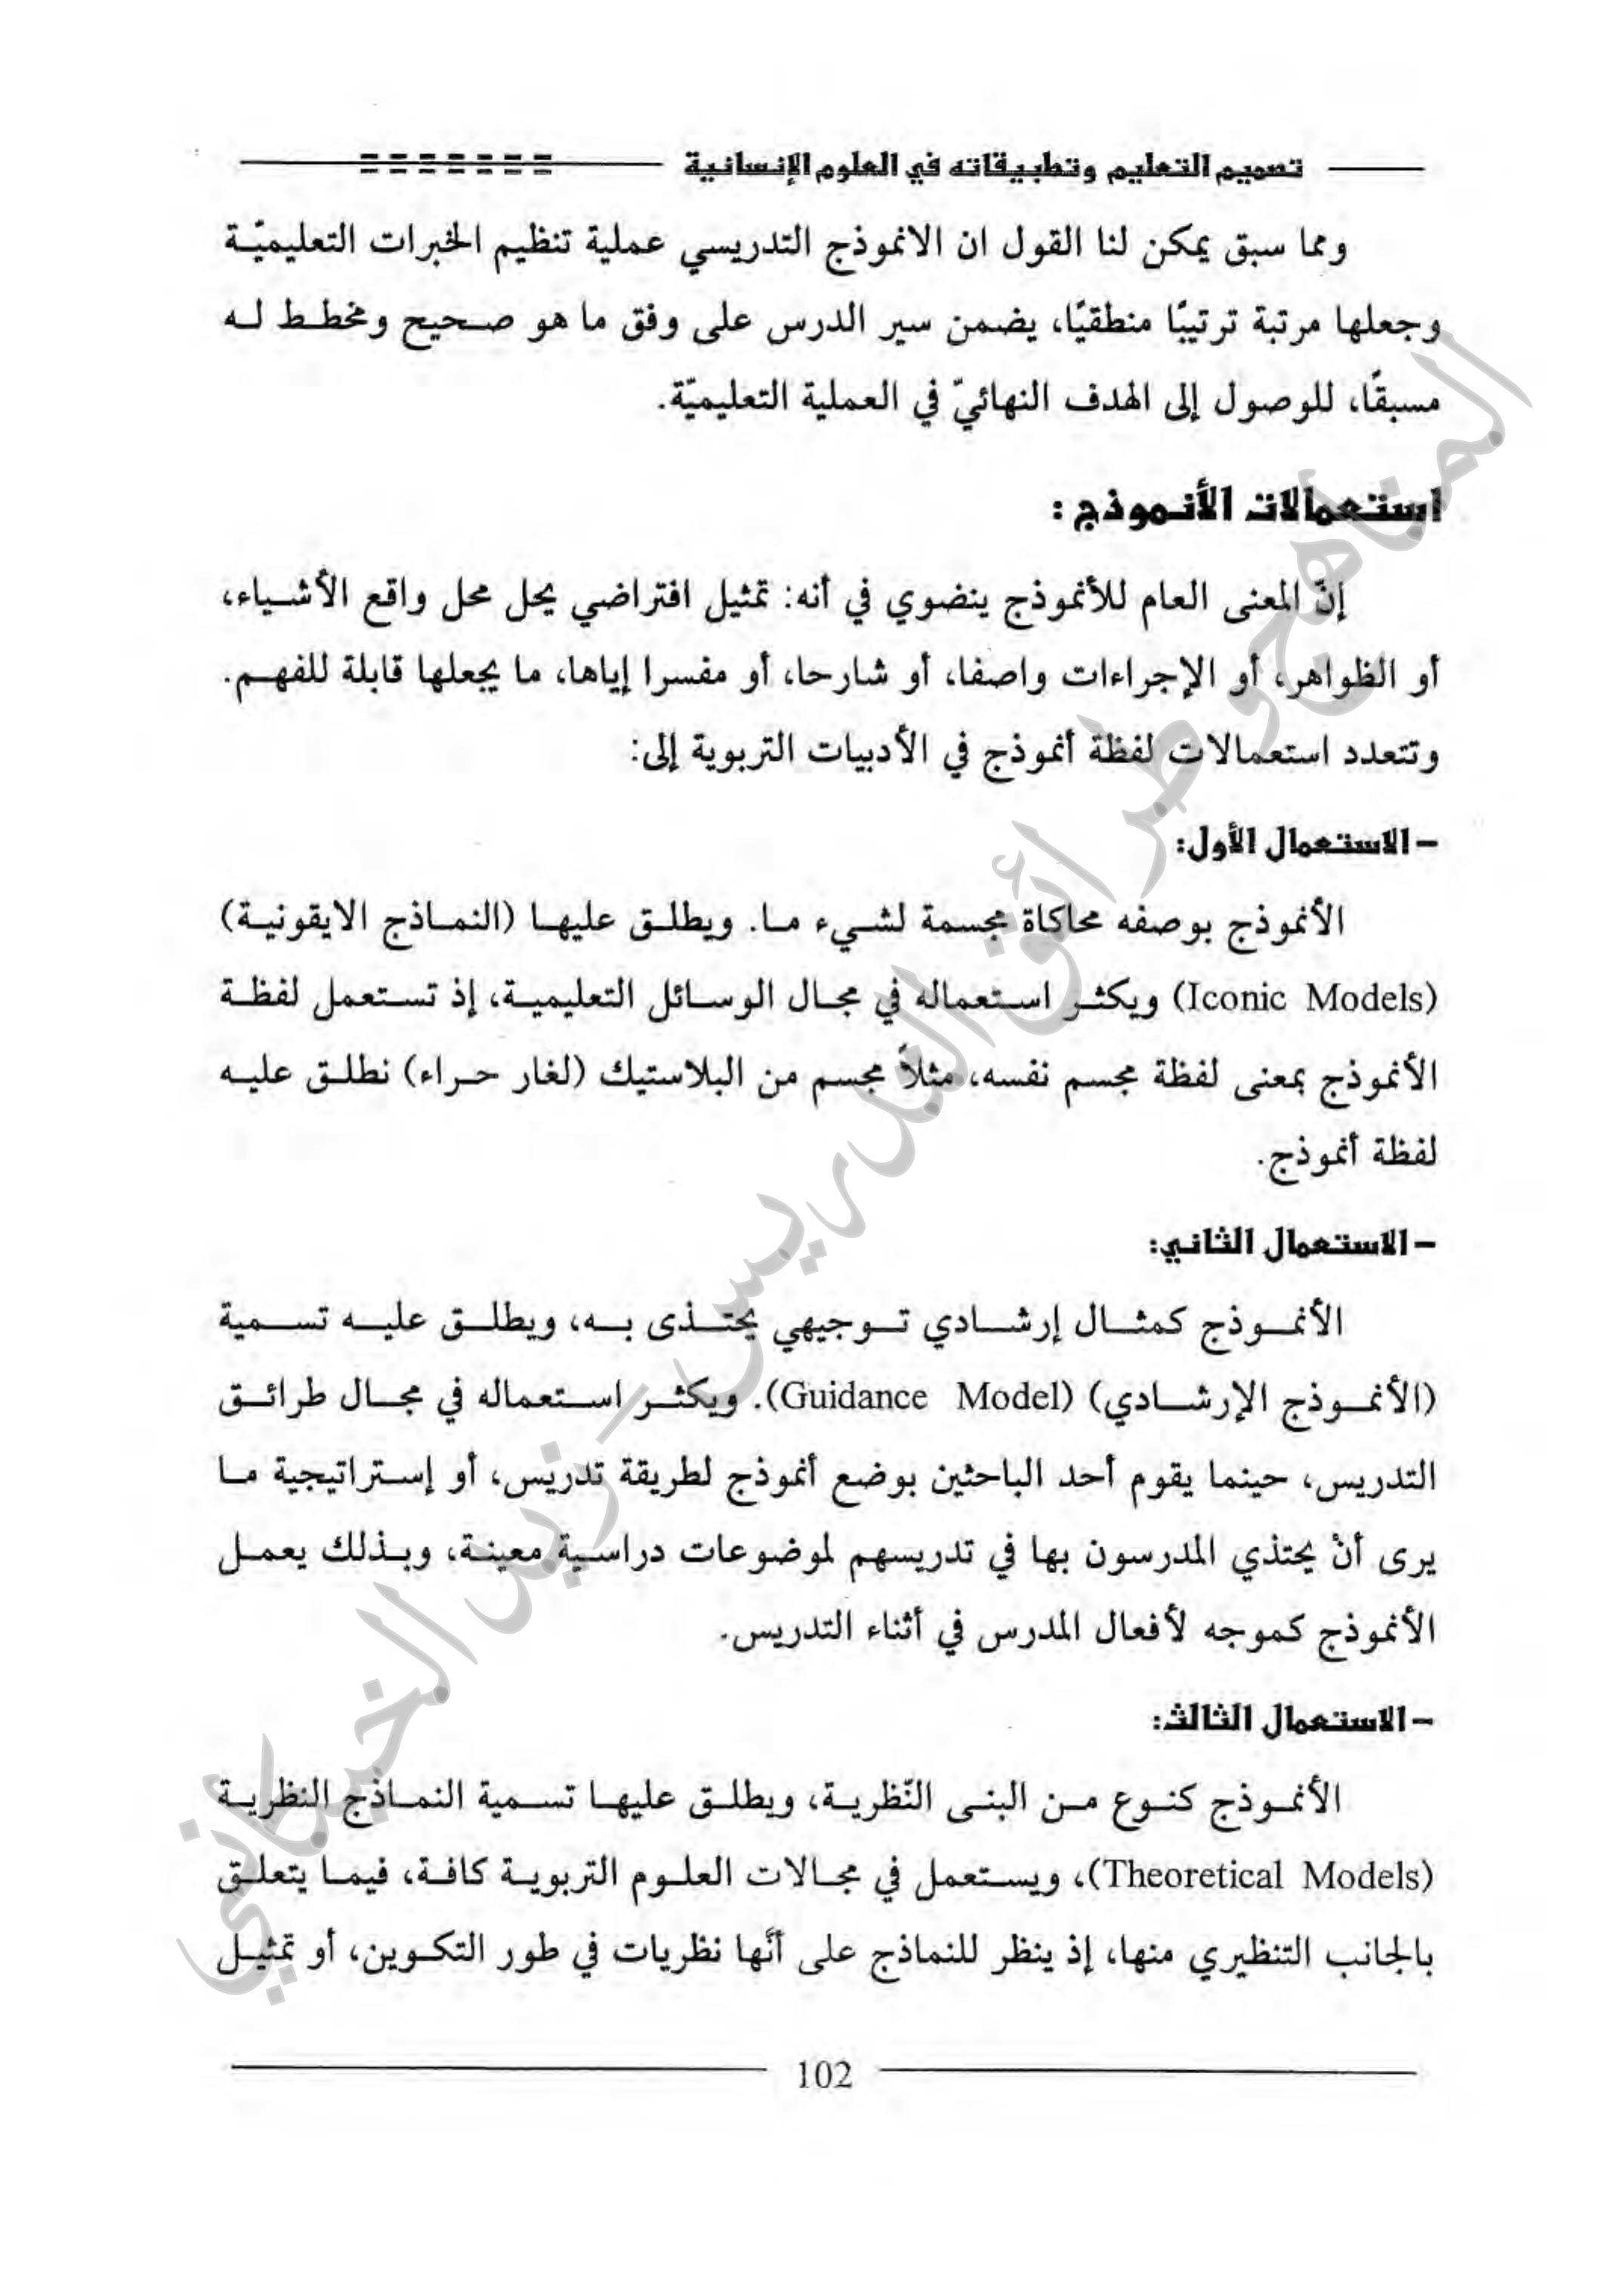 تصميم التعليم وتطبيقاته في العلوم الإنسانية
ومما سبق يمكن لنا القول ان الانموذج التدريسي عملية تنظيم الخبرات التعليميّة
وجعلها مرتبة ترتيبًا منطقيًا، يضمن سير الدرس على وفق ما هو صحيح ومخطط له
مسبقًا، للوصول إلى الهدف النهائيّ في العملية التعليميّة.
استعمالات الأنموذج :
إنّ المعنى العام للأنموذج ينضوي في أنه: تمثيل افتراضي يحل محل واقع الأشياء،
أو الظواهر، أو الإجراءات واصفا، أو شارحا، أو مفسرا إياها، ما يجعلها قابلة للفهم.
وتتعدد استعمالات لفظة أنموذج في الأدبيات التربوية إلى:
– الاستعمال الأول:
الأنموذج بوصفه محاكاة مجسمة لشيء ما. ويطلق عليها (النماذج الايقونية)
(Iconic Models) ويكثر استعماله في مجال الوسائل التعليمية، إذ تستعمل لفظة
الأنموذج بمعنى لفظة مجسم نفسه، مثلاً مجسم من البلاستيك (لغار حراء) نطلق عليه
لفظة أنموذج.
– الاستعمال الثاني:
الأنموذج كمثال إرشادي توجيهي يحتذى به، ويطلق عليه تسمية
(الأنموذج الإرشادي) (Guidance Model). ويكثر استعماله في مجال طرائق
التدريس، حينما يقوم أحد الباحثين بوضع أنموذج لطريقة تدريس، أو إستراتيجية ما
يرى أنْ يحتذي المدرسون بها في تدريسهم لموضوعات دراسية معينة، وبذلك يعمل
الأنموذج كموجه لأفعال المدرس في أثناء التدريس.
– الاستعمال الثالث:
الأنموذج كنوع من البنى النّظرية، ويطلق عليها تسمية النماذج النظرية
(Theoretical Models)، ويستعمل في مجالات العلوم التربوية كافة، فيما يتعلق
بالجانب التنظيري منها، إذ ينظر للنماذج على أنَّها نظريات في طور التكوين، أو تمثيل
102
المناهج وطرائق التدريس – زيد الخيكاني